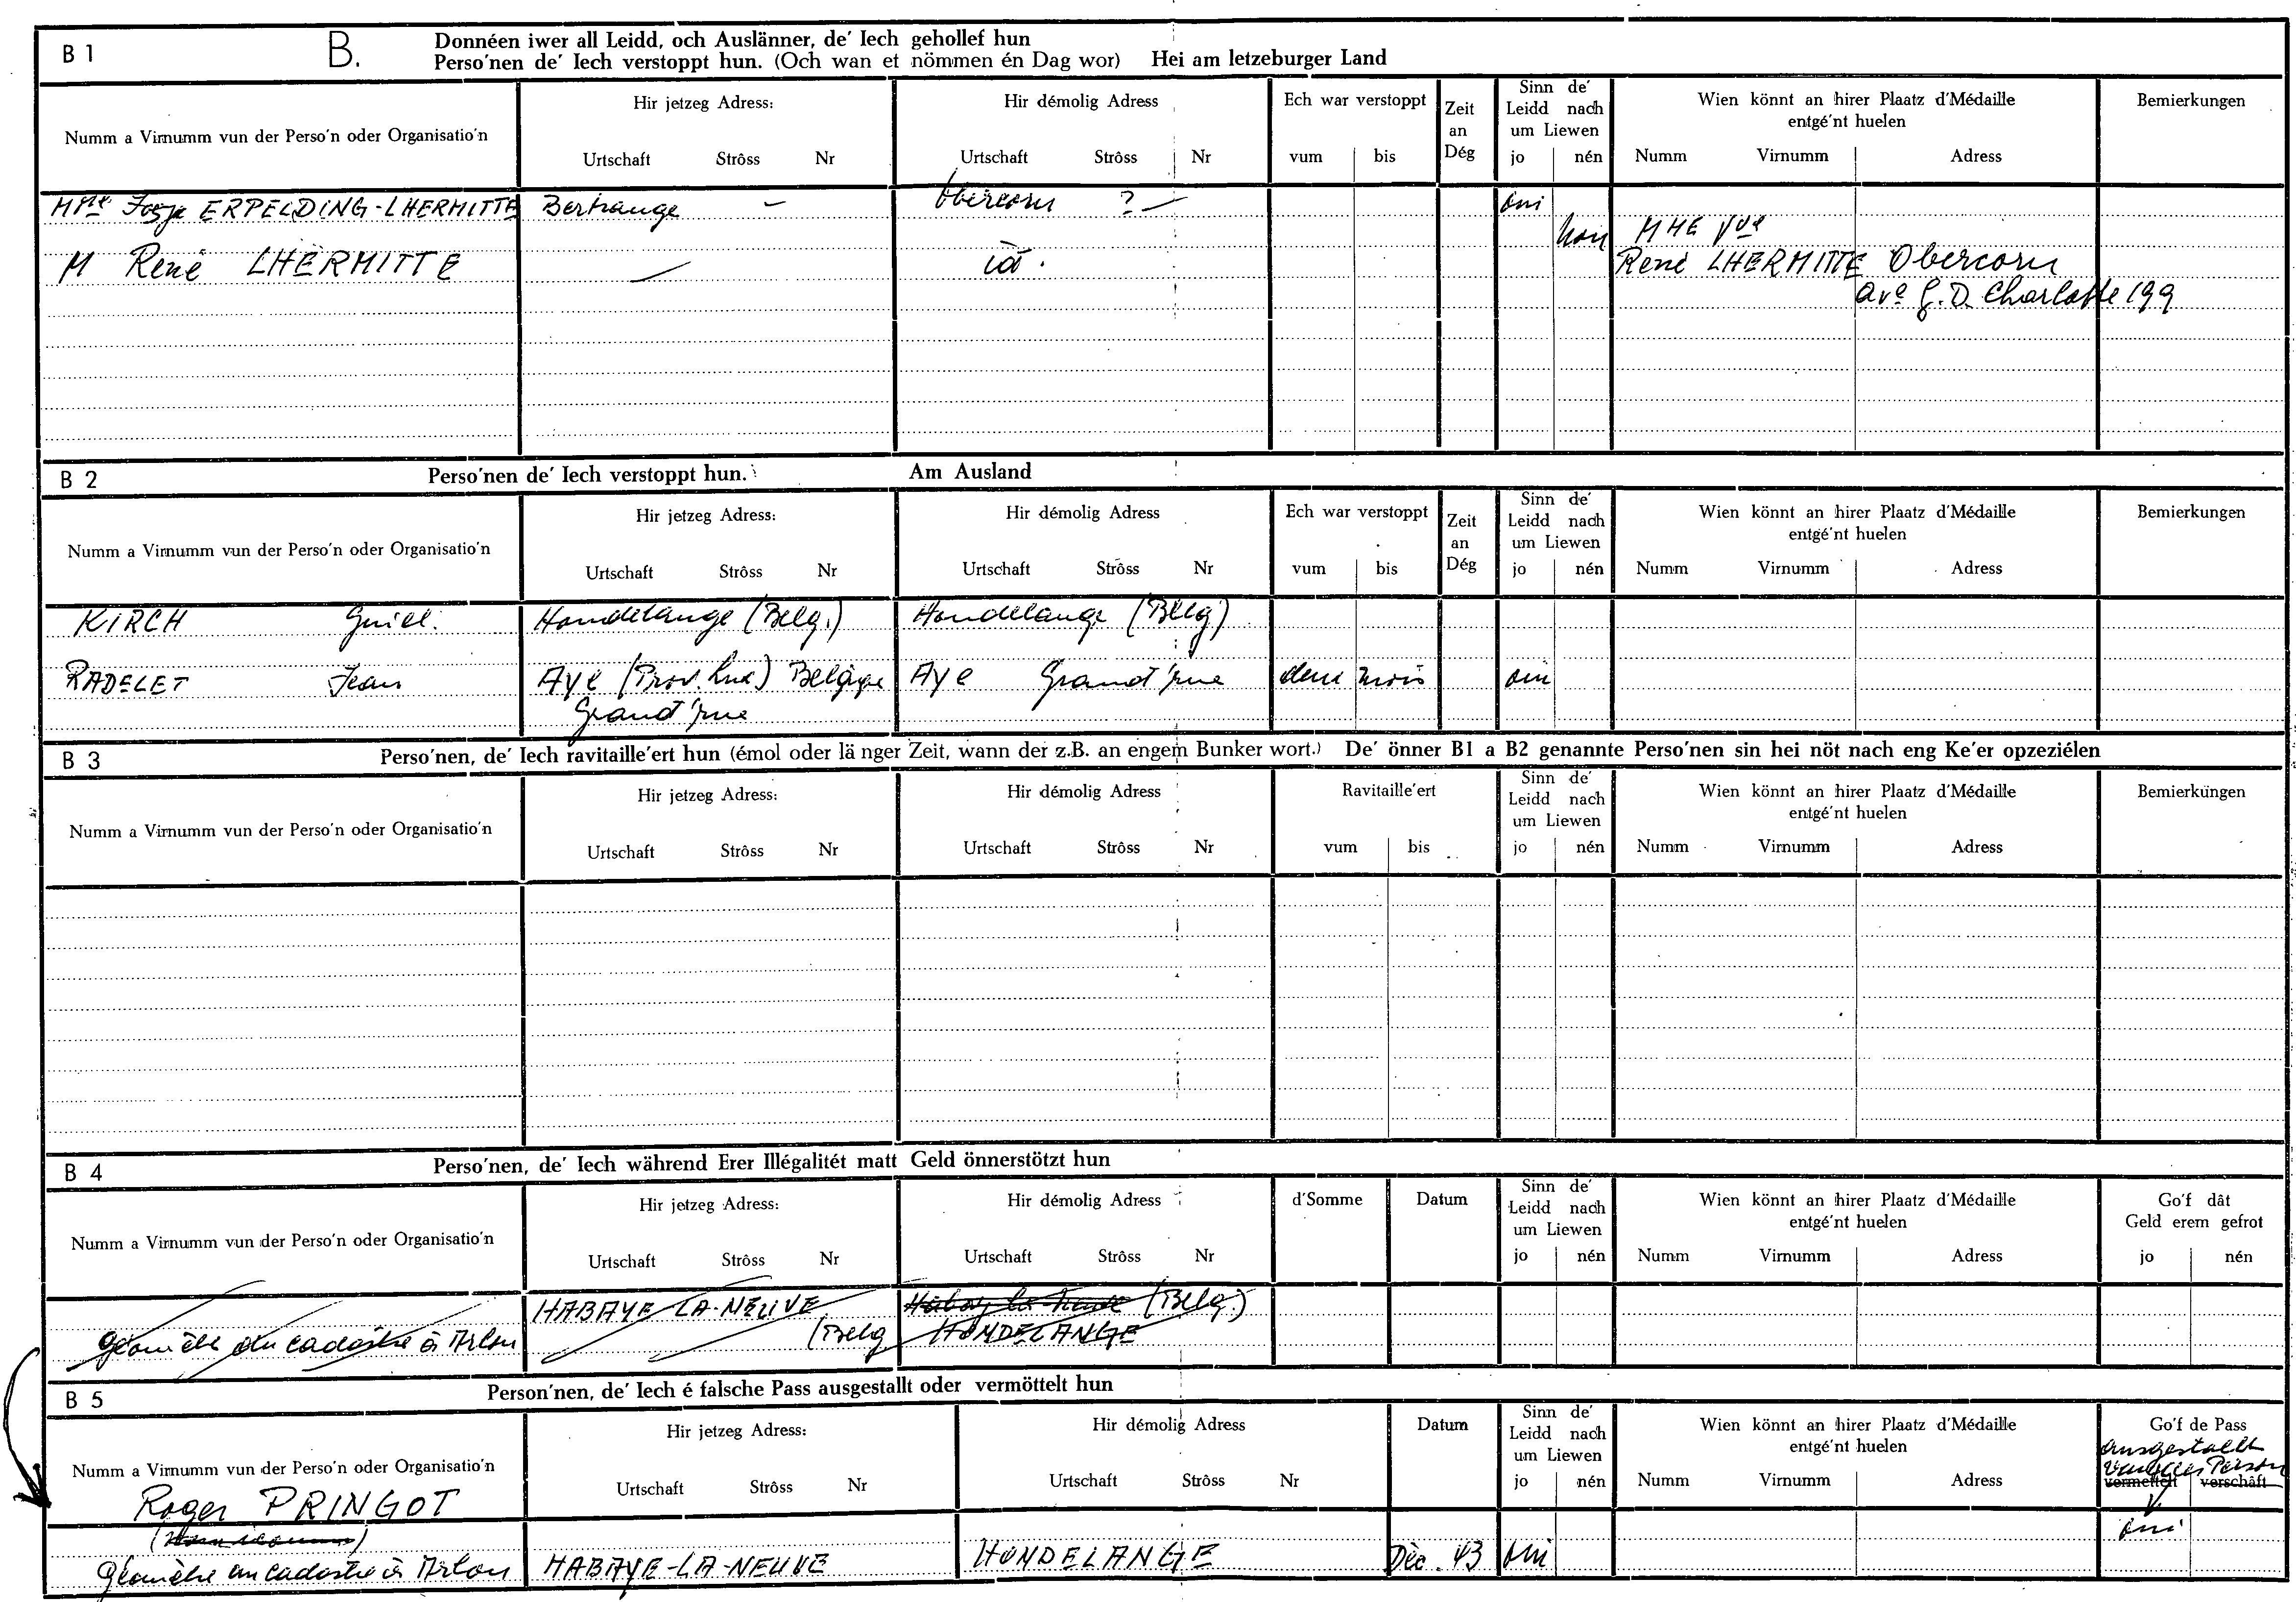 B 1
B.
Donnéen iwer all Leidd, och Auslänner, de' Iech gehollef hun
Perso'nen de' Iech verstoppt hun. (Och wan et nömmen én Dag wor) Hei am letzeburger Land
Numm a Virnumm vun der Perso'n oder Organisatio'n
Hir jetzeg Adress:
Urtschaft Strôss Nr
Hir démolig Adress
Urtschaft Strôss Nr
Ech war verstoppt
vum bis
Zeit
an
Dég
Sinn de'
Leidd nach
um Liewen
jo nén
Wien könnt an hirer Plaatz d'Médaille
entgé'nt huelen
Numm Virnumm Adress
Bemierkungen
ERPELDING-LHERMITTE Bertrange – Obercorn ? – oui
non MME Vve
M René LHERMITTE — id. René LHERMITTE Obercorn
ave G.D. Charlotte 199
B 2
Perso'nen de' Iech verstoppt hun. Am Ausland
Numm a Virnumm vun der Perso'n oder Organisatio'n
Hir jetzeg Adress:
Urtschaft Strôss Nr
Hir démolig Adress
Urtschaft Strôss Nr
Ech war verstoppt
vum bis
Zeit
an
Dég
Sinn de'
Leidd nach
um Liewen
jo nén
Wien könnt an hirer Plaatz d'Médaille
entgé'nt huelen
Numm Virnumm Adress
Bemierkungen
KIRCH Guill. Hondelange (Belg.) Hondelange (Belg)
RADELET Jean Aye (Prov. Lux) Belgique Aye Grand'rue deux mois oui
Grand'rue
B 3
Perso'nen, de' Iech ravitaille'ert hun (émol oder länger Zeit, wann der z.B. an engem Bunker wort.) De' önner B1 a B2 genannte Perso'nen sin hei nöt nach eng Ke'er opzeziélen
Numm a Virnumm vun der Perso'n oder Organisatio'n
Hir jetzeg Adress:
Urtschaft Strôss Nr
Hir démolig Adress
Urtschaft Strôss Nr
Ravitaille'ert
vum bis
Sinn de'
Leidd nach
um Liewen
jo nén
Wien könnt an hirer Plaatz d'Médaille
entgé'nt huelen
Numm Virnumm Adress
Bemierkungen
B 4
Perso'nen, de' Iech während Erer Illégalitét matt Geld önnerstötzt hun
Numm a Virnumm vun der Perso'n oder Organisatio'n
Hir jetzeg Adress:
Urtschaft Strôss Nr
Hir démolig Adress
Urtschaft Strôss Nr
d'Somme
Datum
Sinn de'
Leidd nach
um Liewen
jo nén
Wien könnt an hirer Plaatz d'Médaille
entgé'nt huelen
Numm Virnumm Adress
Go'f dât
Geld erem gefrot
jo nén
HABAYE-LA-NEUVE Habay la Neuve (Belg.)
géomètre du cadastre à Arlon (Belg HONDELANGE
B 5
Person'nen, de' Iech é falsche Pass ausgestallt oder vermöttelt hun
Numm a Virnumm vun der Perso'n oder Organisatio'n
Hir jetzeg Adress:
Urtschaft Strôss Nr
Hir démolig Adress
Urtschaft Strôss Nr
Datum
Sinn de'
Leidd nach
um Liewen
jo nén
Wien könnt an hirer Plaatz d'Médaille
entgé'nt huelen
Numm Virnumm Adress
Go'f de Pass
ausgestallt
Person
vermettelt verschâft
Roger PRINGOT
oui
géomètre au cadastre à Arlon HABAYE-LA-NEUVE HONDELANGE Déc. 43 oui